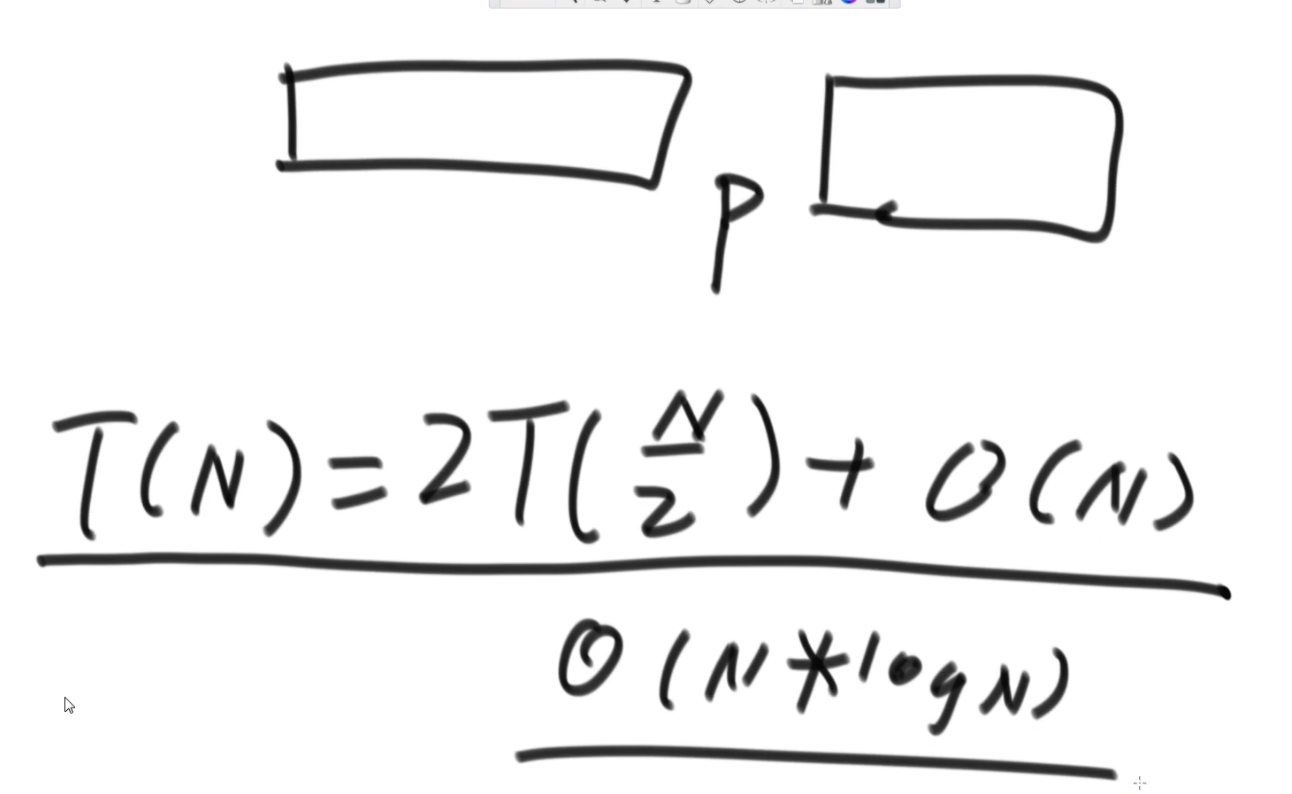 P
T(N)=2T(N/2)+O(N)
O(N*logN)